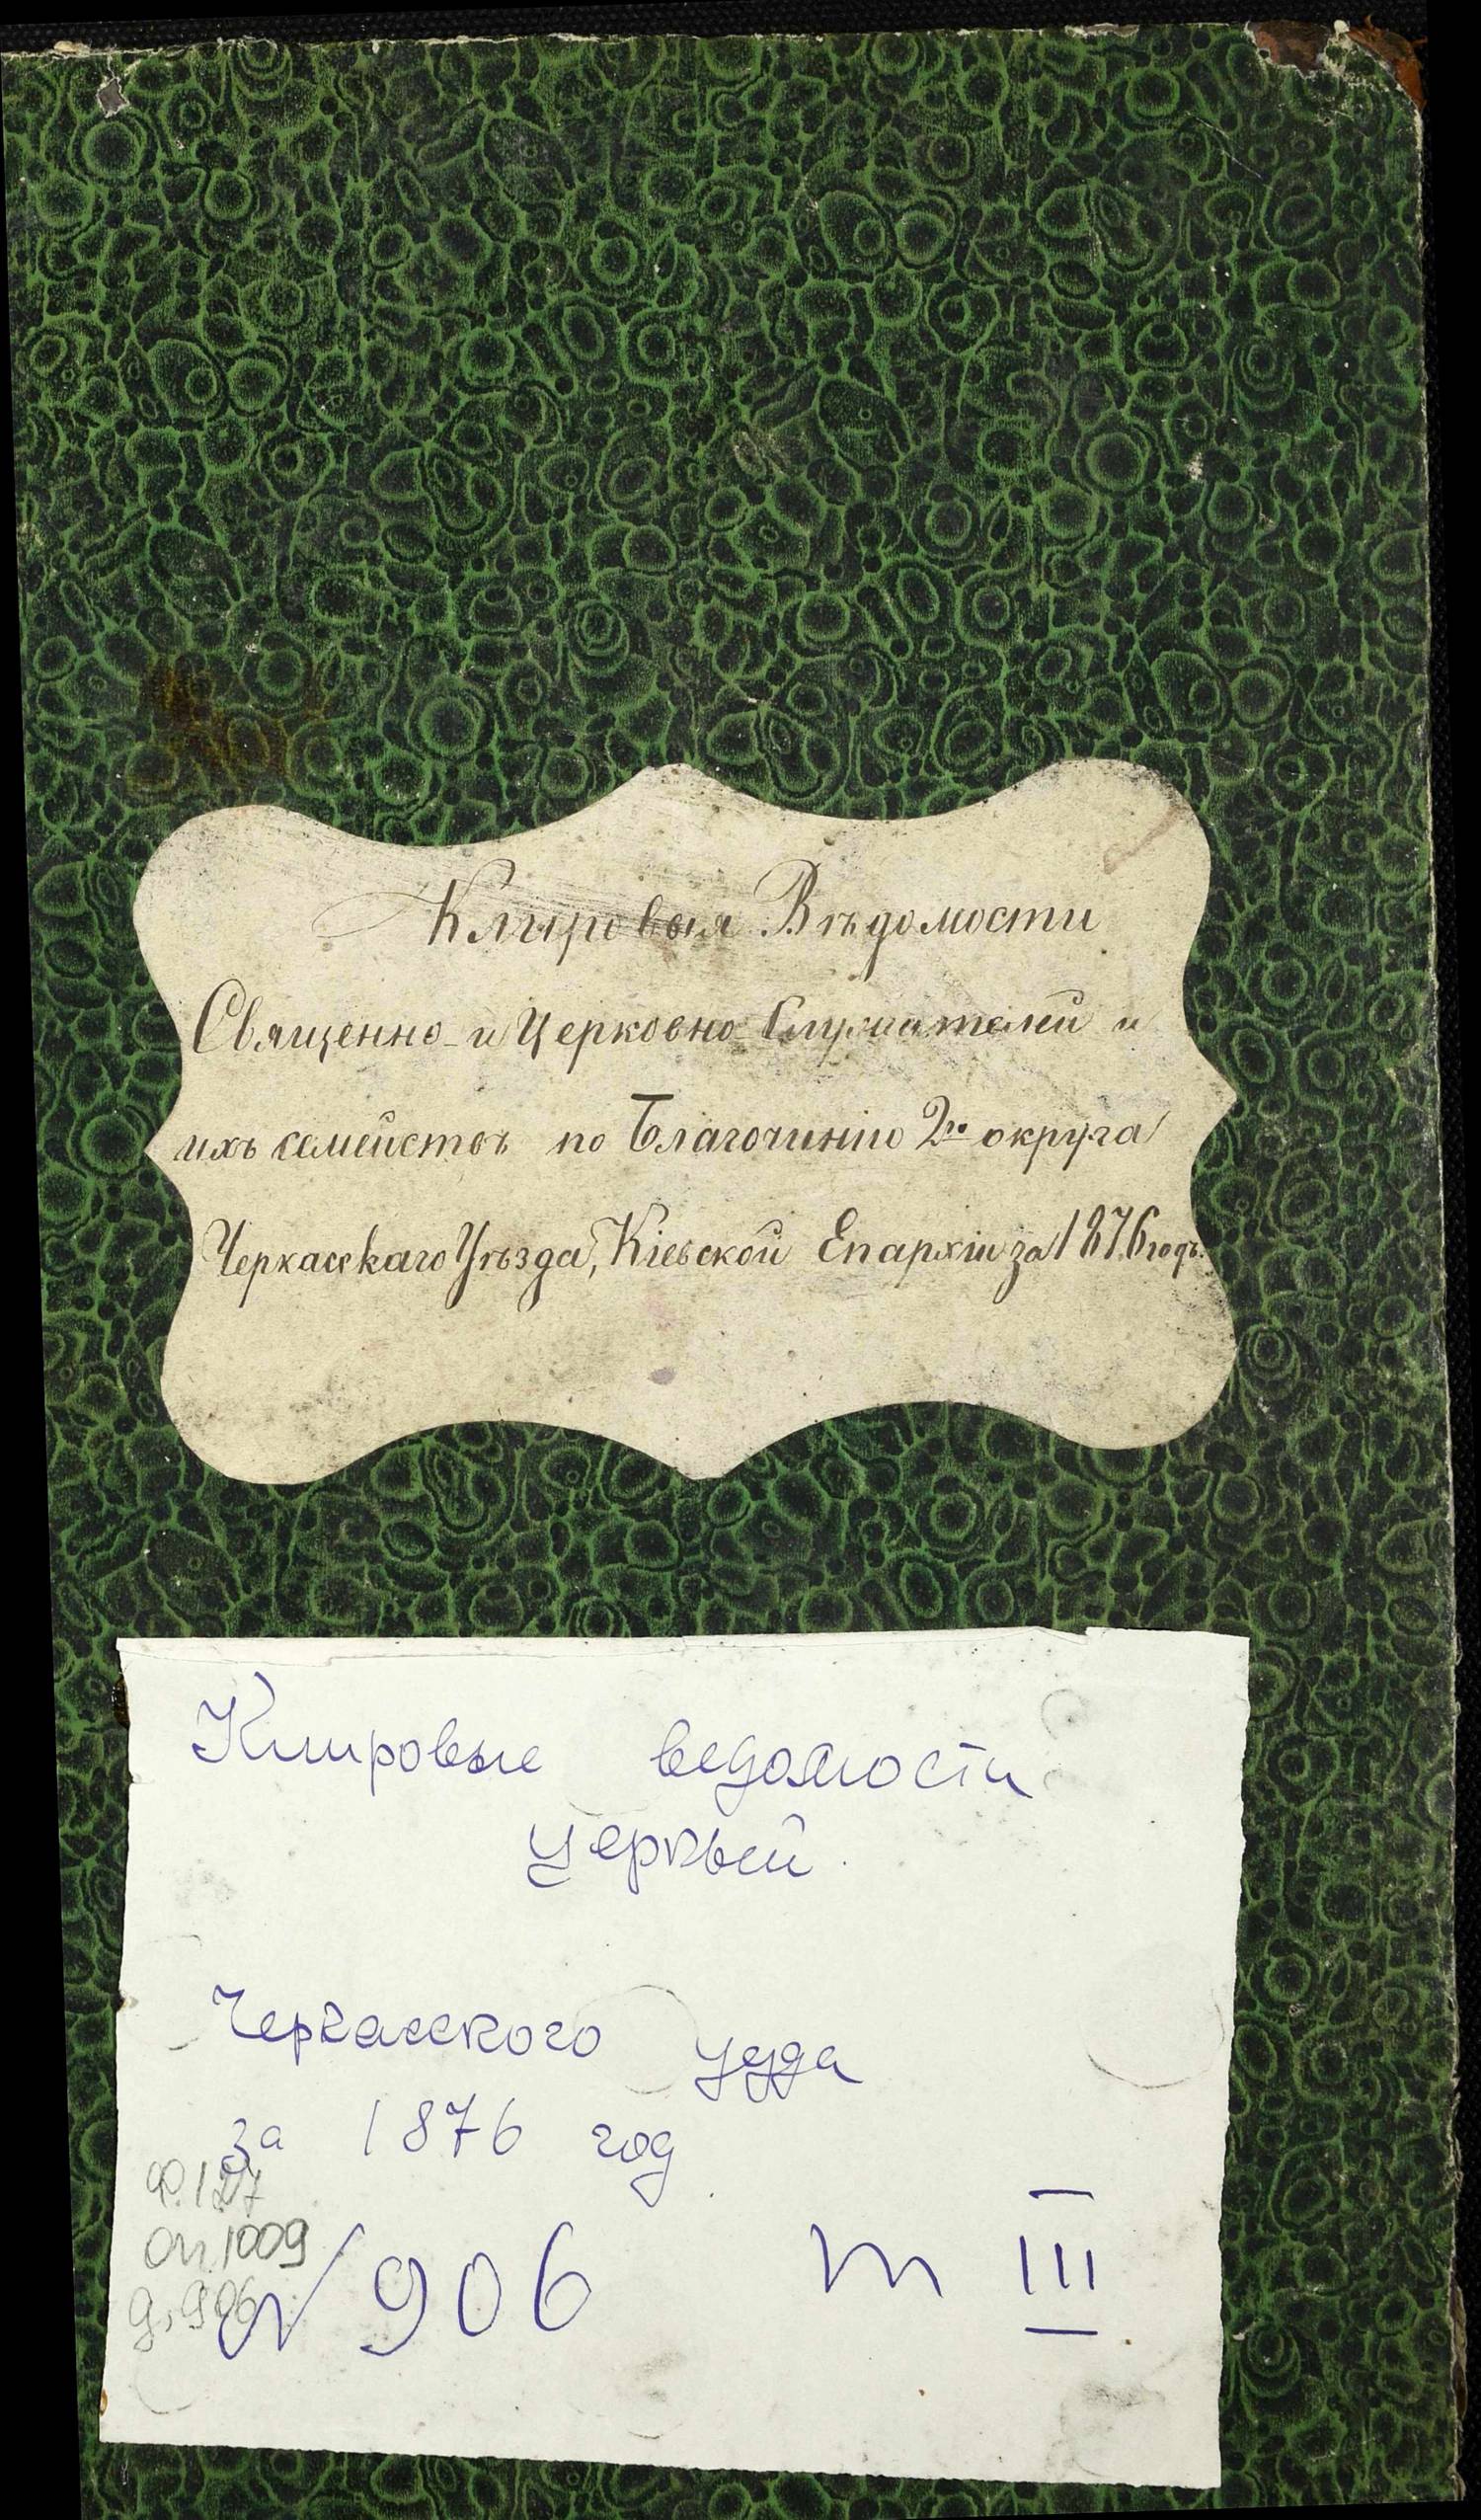 Клировыя Вѣдомости
Священно-и Церковно Служителей и
ихъ семействъ по Благочинію 2го округа
Черкасскаго Уѣзда, Кіевской Епархіи за 1876 годъ.
Клировые ведомости
церквей.
Черкасского уезда
за 1876 год
ф. 127
оп. 1009
д. 906
№ 906 т III